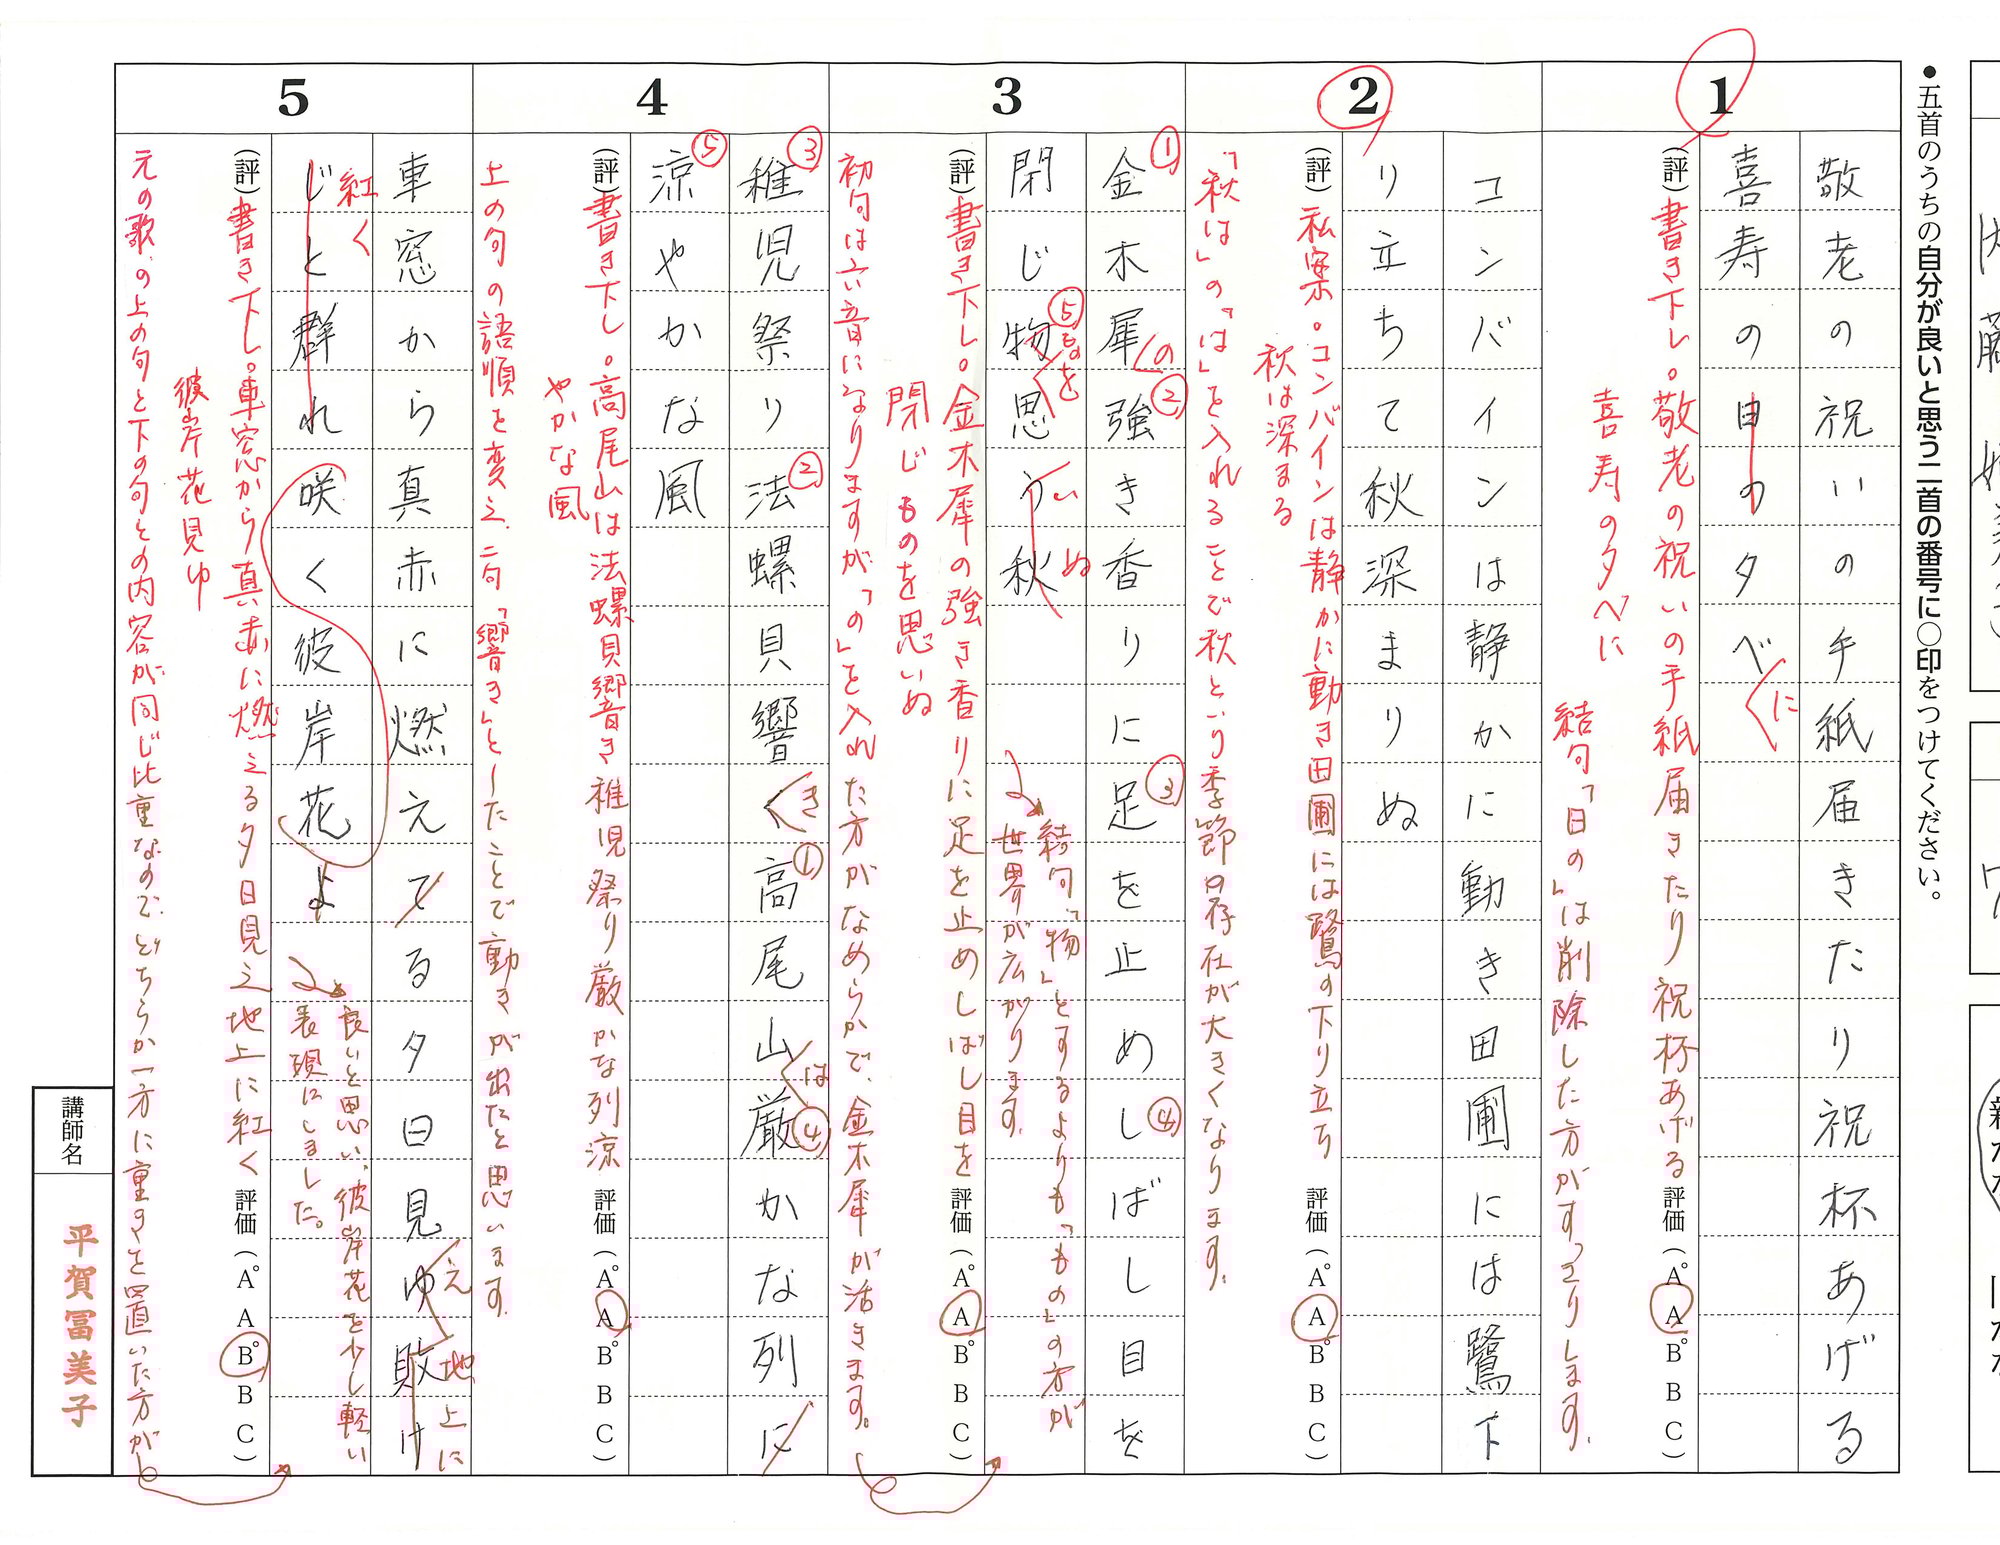 ●五首のうちの自分が良いと思う二首の番号に〇印をつけてください。
1
敬老の祝いの手紙届きたり祝杯あげる
喜寿の日の夕べ
に
(評)書き下し。敬老の祝いの手紙届きたり祝杯あげる
喜寿の夕べに
結句「日の」は削除した方がすっきりします。
評価(A° A B° B C)
2
コンバインは静かに動き田圃には鷺下
り立ちて秋深まりぬ
(評)私案。コンバインは静かに動き田圃には鷺の下り立ち
秋は深まる
「秋は」の「は」を入れることで秋という季節の存在が大きくなります。
評価(A° A B° B C)
3
金木犀強き香りに足を止めしばし目を
閉じ物思う秋
① の ② ③ ④
⑤ もの を い ぬ
(評)書き下し。金木犀の強き香りに足を止めしばし目を
閉じものを思いぬ
初句は六音になりますが「の」を入れた方がなめらかで、金木犀が活きます。
結句「物」とするよりも「もの」の方が
世界が広がります。
評価(A° A B° B C)
4
稚児祭り法螺貝響く高尾山厳かな列に
涼やかな風
③ ② き ① は ④
⑤
(評)書き下し。高尾山は法螺貝響き稚児祭り厳かな列涼
やかな風
上の句の語順を変え、二句「響き」としたことで動きが出たと思います。
評価(A° A B° B C)
5
車窓から真赤に燃えてる夕日見ゆ敗け
じと群れ咲く彼岸花よ
え 地上に
紅く
(評)書き下し。車窓から真赤に燃える夕日見え地上に紅く
彼岸花見ゆ
元の歌の上の句と下の句との内容が同じ比重なので、どちらか一方に重きを置いた方が
良いと思い、彼岸花を少し軽い
表現にしました。
評価(A° A B° B C)
講師名
平賀冨美子